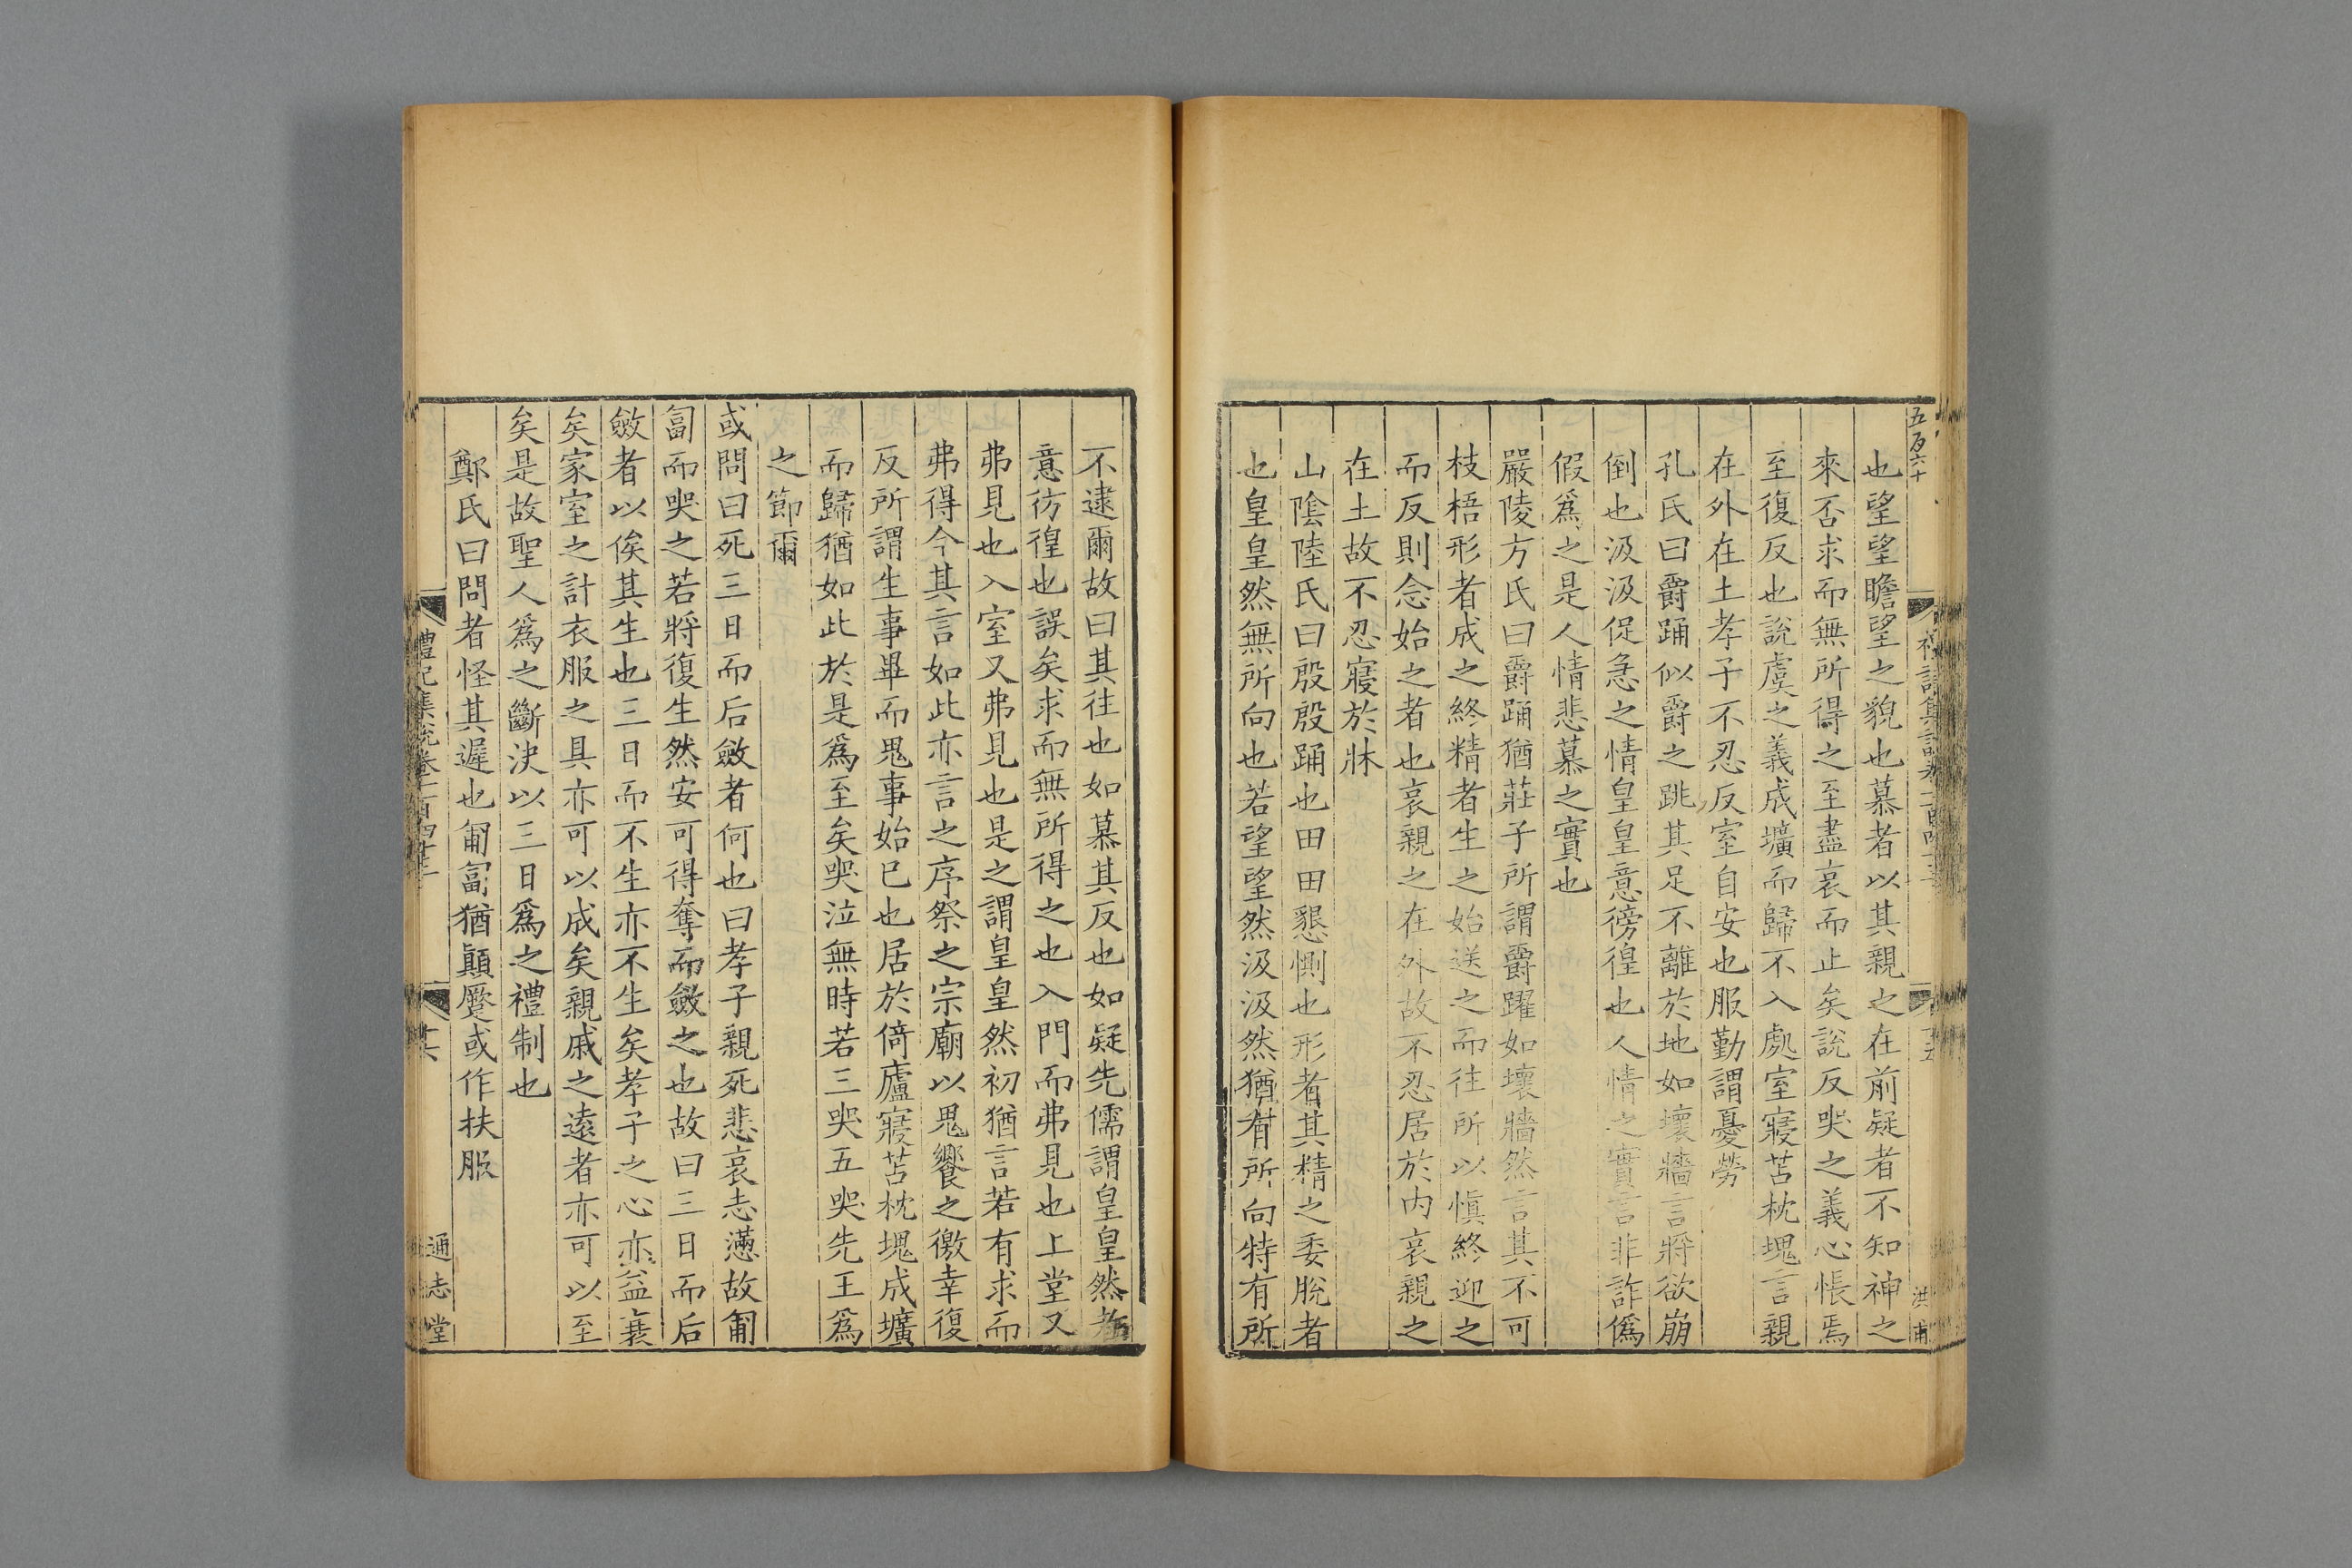 五百六十
也望望瞻望之貌也慕者以其親之在前疑者不知神之
來否求而無所得之至盡哀而止矣說反哭之義心悵焉
至復反也說虞之義成壙而歸不入處室寢苫枕塊言親
在外在土孝子不忍反室自安也服勤謂憂勞
孔氏曰爵踊似爵之跳其足不離於地如壞牆言將欲崩
倒也汲汲促急之情皇皇意徬徨也人情之實言非詐僞
假爲之是人情悲慕之實也
嚴陵方氏曰爵踊猶莊子所謂爵躍如壞牆然言其不可
枝梧形者成之終精者生之始送之而往所以愼終迎之
而反則念始之者也哀親之在外故不忍居於內哀親之
在土故不忍寢於牀
山隂陸氏曰殷殷踊也田田懇惻也形者其精之委脫者
也皇皇然無所向也若望望然汲汲然猶有所向特有所
不逮爾故曰其往也如慕其反也如疑先儒謂皇皇然者
意彷徨也誤矣求而無所得之也入門而弗見也上堂又
弗見也入室又弗見也是之謂皇皇然初猶言若有求而
弗得今其言如此亦言之序祭之宗廟以鬼饗之徼幸復
反所謂生事畢而鬼事始已也居於倚廬寢苫枕塊成壙
而歸猶如此於是爲至矣哭泣無時若三哭五哭先王爲
之節爾
或問曰死三日而后斂者何也曰孝子親死悲哀志懣故匍
匐而哭之若將復生然安可得奪而斂之也故曰三日而后
斂者以俟其生也三日而不生亦不生矣孝子之心亦益衰
矣家室之計衣服之具亦可以成矣親戚之遠者亦可以至
矣是故聖人爲之斷決以三日爲之禮制也
鄭氏曰問者怪其遲也匍匐猶顚蹷或作扶服
通志堂